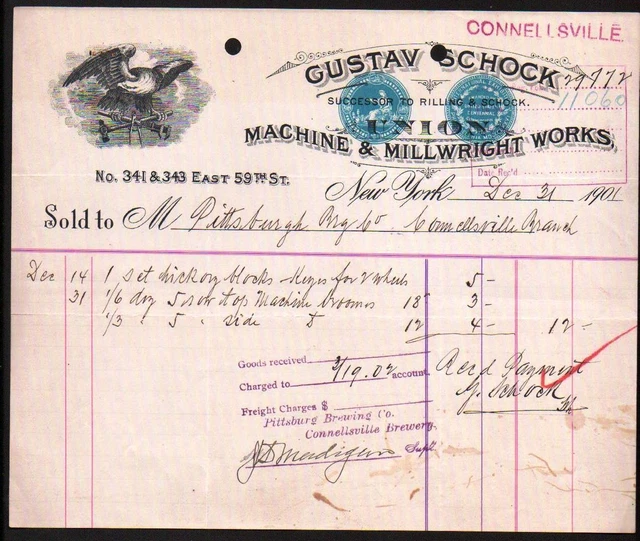 CONNELLSVILLE.
GUSTAV SCHOCK
29772
11060
SUCCESSOR TO RILLING & SCHOCK.
UNION
MACHINE & MILLWRIGHT WORKS,
No. 341 & 343 EAST 59TH ST.
Date Rec'd
New York Dec 31 1901
Sold to M Pittsburgh Brg Co Connellsville Branch
Dec 14 1 set hickory blocks - Keyes for 2 wheels 5 -
31 1/6 doz 5 row top Machine brooms 18 3 -
1/3 " 5 " side 12 4 - 12 -
Goods received
3/19.02
Charged to account
Recd Payment
G. Schock
Freight Charges $
Pittsburg Brewing Co.
Connellsville Brewery.
Supt.